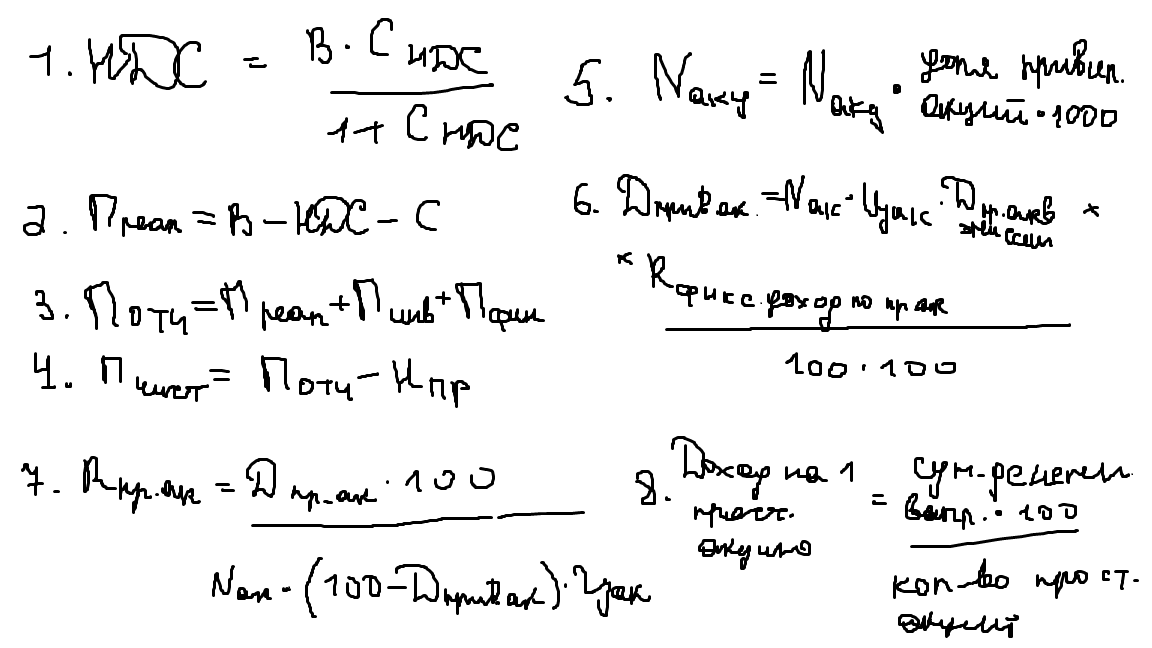 1. НДС = В · С НДС / 1 + С НДС
2. П реал = В – НДС – С
3. П отч = П реал + П инв + П фин
4. П чист = П отч – Н пр
5. N акц = N акц · доля привил. акций · 1000
6. D прив ак. = N ак · Ц ак · D пр. акв эмиссии ×
× R фикс. доход по пр ак
100 · 100
7. R пр. ак = D пр. ак · 100
N ак · (100 – D прив ак) · Ц ак
8. Доход на 1 прост. акцию = сум.
100
кол-во прост. акций